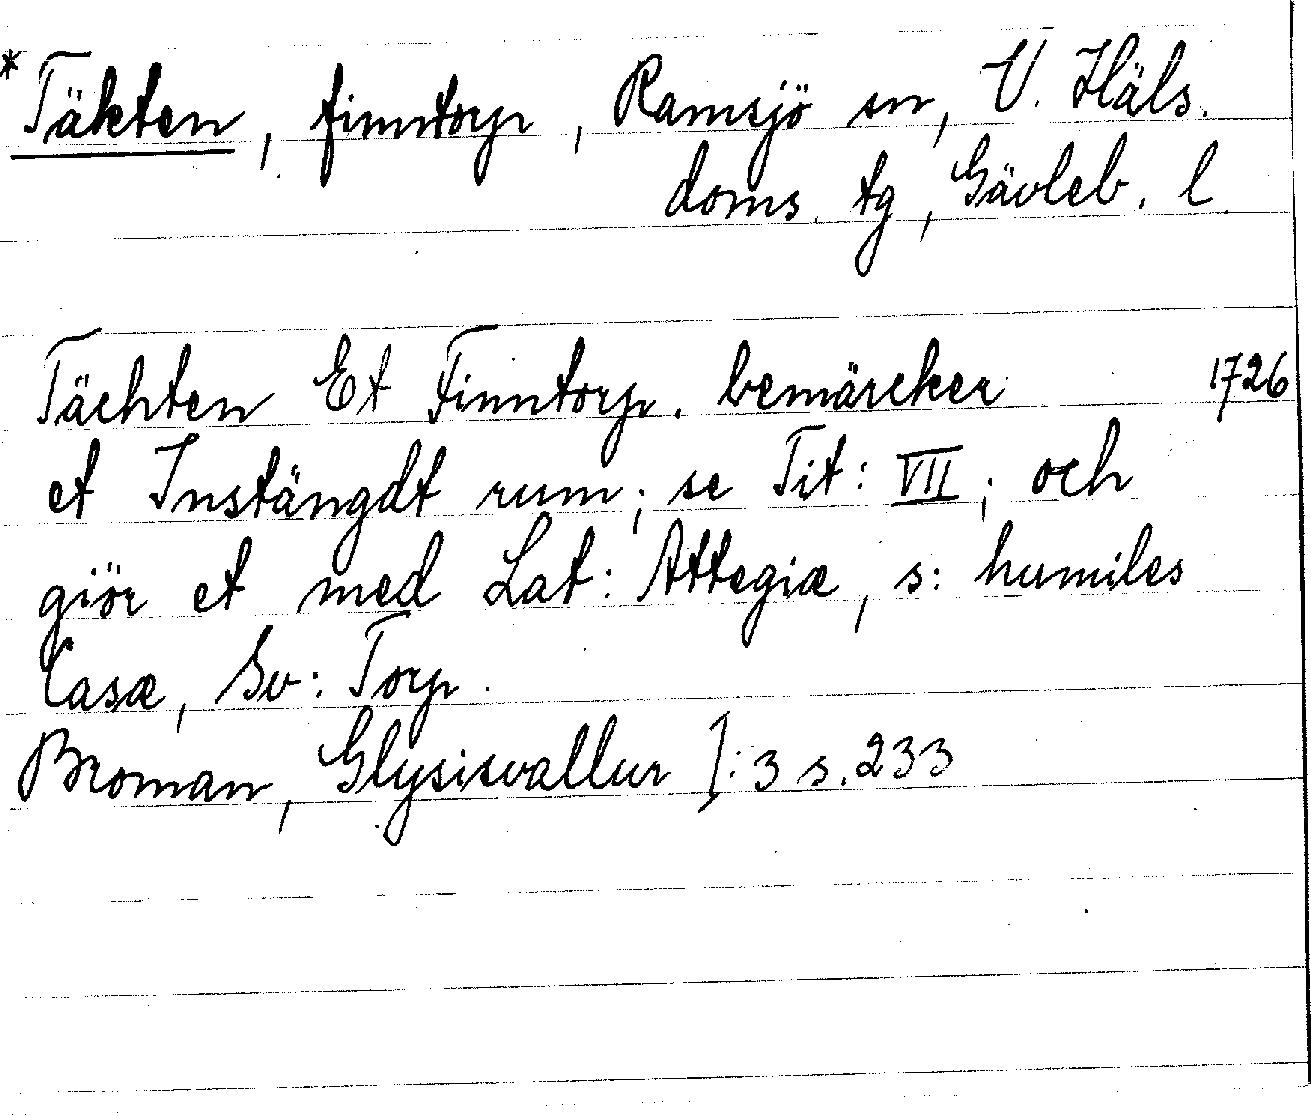 * Täkten, finntorp, Ramsjö sn, V. Häls.
doms. tg, Gävleb. l.
Tächten Et Finntorp. bemärcker 1726
et Instängdt rum; se Tit: VII; och
giör et med Lat: Attegiæ, s: humiles
Casæ, Sv: Torp.
Broman, Glysisvallur I:3 s. 233